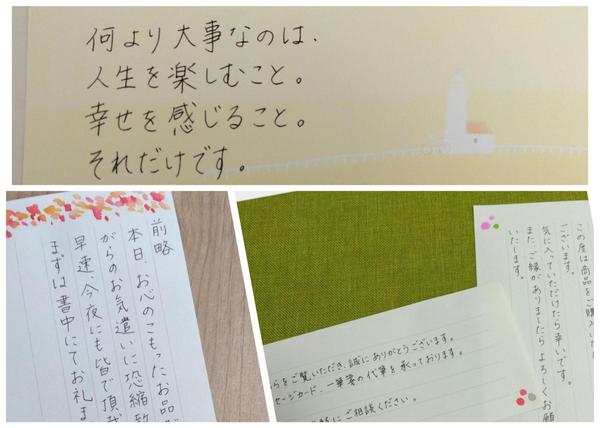 何より大事なのは、
人生を楽しむこと。
幸せを感じること。
それだけです。
前略
本日、お心のこもったお品
がらのお気遣いに恐縮致
早速、今夜にも皆で頂戴
まずは書中にてお礼ま
この度は商品をご購入いた
ございます。
気に入っていただけたら幸いです。
また、ご縁がありましたらよろしくお願
いたします。
らをご覧いただき、誠にありがとうございます。
セージカード、一筆箋の代筆を承っております。
にご相談ください。